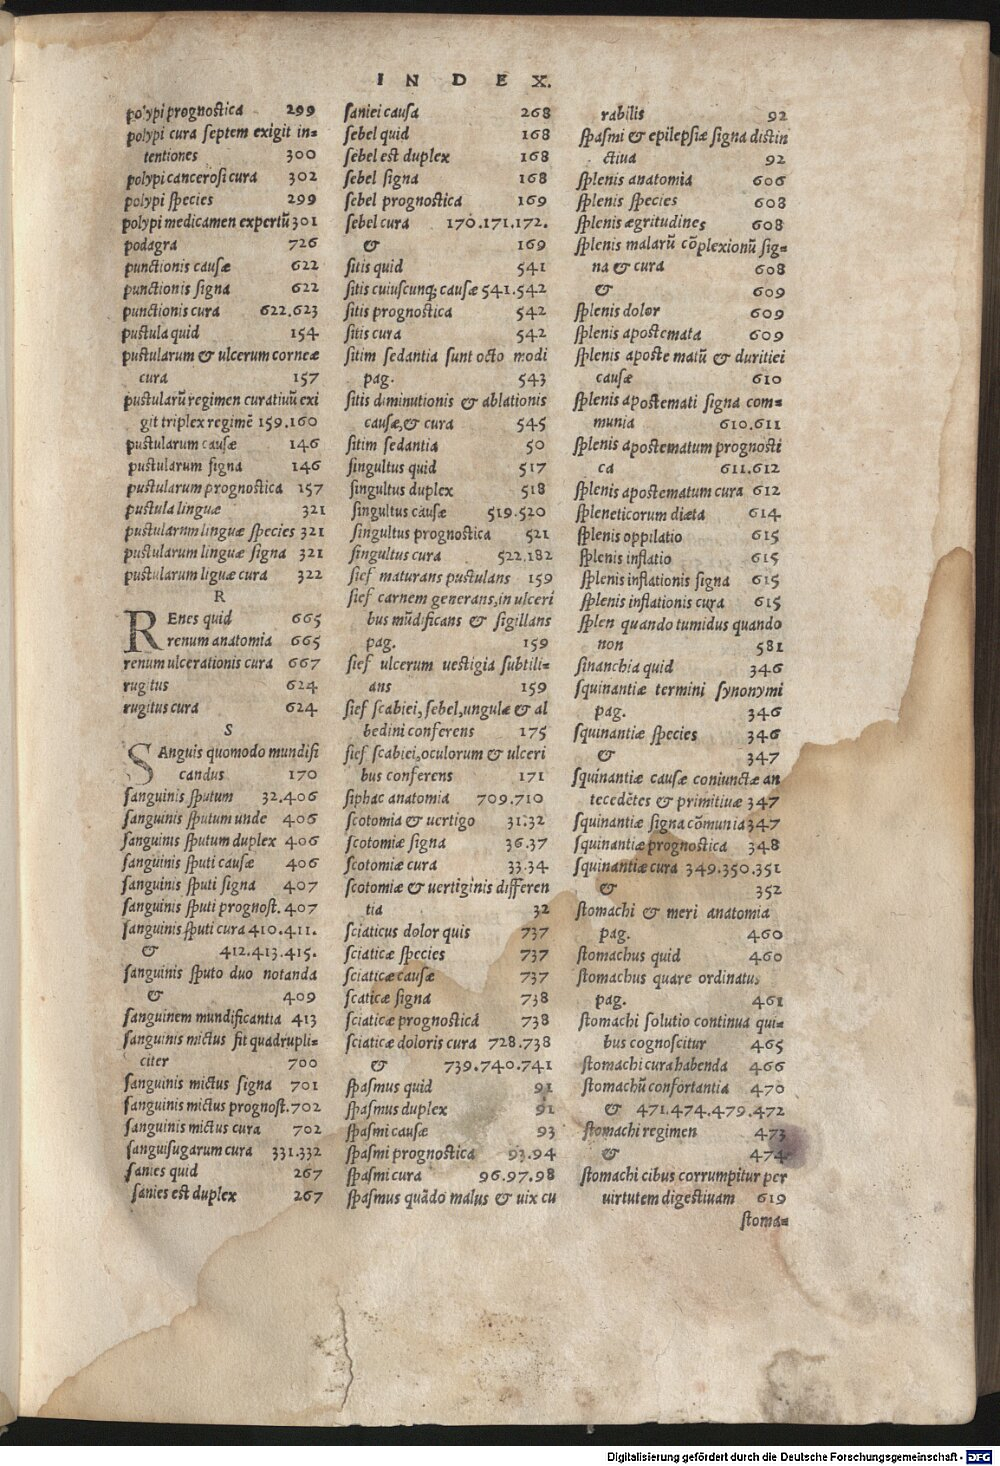 INDEX.
polypi prognostica 299
polypi cura septem exigit in=
tentiones 300
polypi cancerosi cura 302
polypi species 299
polypi medicamen expertũ 301
podagra 726
punctionis causæ 622
punctionis signa 622
punctionis cura 622.623
pustula quid 154
pustularum & ulcerum corneæ
cura 157
pustularũ regimen curatiuũ exi
git triplex regimẽ 159.160
pustularum causæ 146
pustularum signa 146
pustularum prognostica 157
pustula linguæ 321
pustularnm linguæ species 321
pustularum linguæ signa 321
pustularum liguæ cura 322
R
REnes quid 665
renum anatomia 665
renum ulcerationis cura 667
rugitus 624
rugitus cura 624
S
SAnguis quomodo mundifi
candus 170
sanguinis sputum 32.406
sanguinis sputum unde 406
sanguinis sputum duplex 406
sanguinis sputi causæ 406
sanguinis sputi signa 407
sanguinis sputi prognost. 407
sanguinis sputi cura 410.411.
& 412.413.415.
sanguinis sputo duo notanda
& 409
sanguinem mundificantia 413
sanguinis mictus fit quadrupli=
citer 700
sanguinis mictus signa 701
sanguinis mictus prognost. 702
sanguinis mictus cura 702
sanguisugarum cura 331.332
sanies quid 267
sanies est duplex 267
saniei causa 268
sebel quid 168
sebel est duplex 168
sebel signa 168
sebel prognostica 169
sebel cura 170.171.172.
& 169
sitis quid 541
sitis cuiuscunq; causæ 541.542
sitis prognostica 542
sitis cura 542
sitim sedantia sunt octo modi
pag. 543
sitis diminutionis & ablationis
causæ, & cura 545
sitim sedantia 50
singultus quid 517
singultus duplex 518
singultus causæ 519.520
singultus prognostica 521
singultus cura 522.182
sief maturans pustulans 159
sief carnem generans, in ulceri
bus mũdificans & sigillans
pag. 159
sief ulcerum uestigia subtili=
ans 159
sief scabiei, sebel, ungulæ & al
bedini conferens 175
sief scabiei, oculorum & ulceri
bus conferens 171
siphac anatomia 709.710
scotomia & uertigo 31.32
scotomiæ signa 36.37
scotomiæ cura 33.34
scotomiæ & uertiginis differen
tia 32
sciaticus dolor quis 737
sciaticæ species 737
sciaticæ causæ 737
scaticæ signa 738
sciaticæ prognostica 738
sciaticæ doloris cura 728.738
& 739.740.741
spasmus quid 91
spasmus duplex 91
spasmi causæ 93
spasmi prognostica 93.94
spasmi cura 96.97.98
spasmus quãdo malus & uix cu
rabilis 92
spasmi & epilepsiæ signa distin
ctiua 92
splenis anatomia 606
splenis species 608
splenis ægritudines 608
splenis malarũ cõplexionũ sig=
na & cura 608
& 609
splenis dolor 609
splenis apostemata 609
splenis aposte matũ & duritiei
causæ 610
splenis apostemati signa com=
munia 610.611
splenis apostematum prognosti
ca 611.612
splenis apostematum cura 612
spleneticorum diæta 614
splenis oppilatio 615
splenis inflatio 615
splenis inflationis signa 615
splenis inflationis cura 615
splen quando tumidus quando
non 581
sinanchia quid 346
squinantiæ termini synonymi
pag. 346
squinantiæ species 346
& 347
squinantiæ causæ coniunctæ an
tecedẽtes & primitiuæ 347
squinantiæ signa cõmunia 347
squinantiæ prognostica 348
squinantiæ cura 349.350.351
& 352
stomachi & meri anatomia
pag. 460
stomachus quid 460
stomachus quare ordinatus
pag. 461
stomachi solutio continua qui=
bus cognoscitur 465
stomachi cura habenda 466
stomachũ confortantia 470
& 471.474.479.472
stomachi regimen 473
& 474
stomachi cibus corrumpitur per
uirtutem digestiuam 619
stoma=
Digitalisierung gefördert durch die Deutsche Forschungsgemeinschaft - DFG